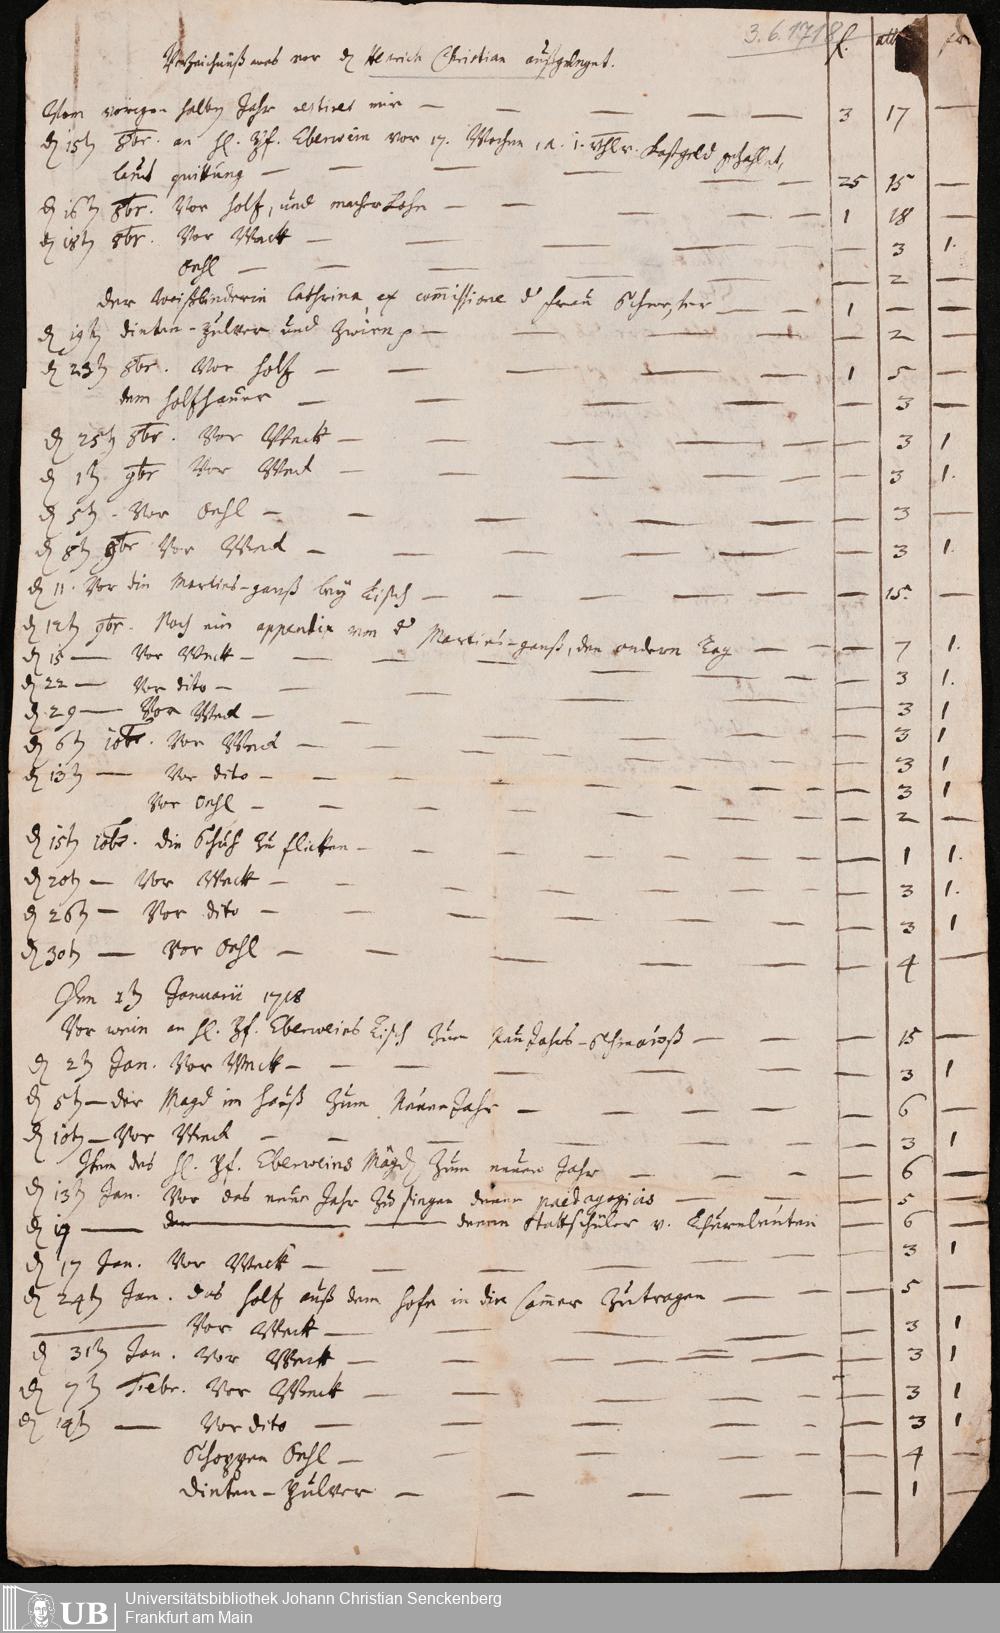 3.6.1718
Verzeichnüß was vor d Henrich Christian außgeleget. f. alb
Vom vorigen halben Jahr restiret mir — 3 17 —
d 15t 8br. an H. Pf. Eberwein vor 17. Wochen, a. 1. rthlr. Kostgeld gezahlet,
laut quittung — 25 15 —
d 16t 8br. Vor holtz, und macherlohn — 1 18 —
d 18t 8br. Vor Weck — 3 1.
Oehl — 2 —
der Weißbinderin Cathrina, ex commissione d Frau Schwester — 1 — —
d 19t dinten-pulver und Zwirn — 2 —
d 23t 8br. Vor holtz — 1 5 —
dem holtzhauer — 3 —
d 25t 8br. Vor Weck — 3 1
d 1t 9br Vor Weck — 3 1.
d 5t - Vor Oehl — 3 —
d 8t 9br Vor Weck — 3 1.
d 11. Vor die Martins-ganß bey Tisch — 15. —
d 12t 9br. Noch ein appendix von d Martins-ganß, den andern Tag — 7 1.
d 15 — Vor Weck — 3 1.
d 22 — Vor dito — 3 1
d 29 — Vor Weck — 3 1
d 6t 10br. Vor Weck — 3 1
d 13t — Vor dito — 3 1
Vor Oehl — 2 —
d 15t 10br. die Schuh zu flicken — 1 1.
d 20t — Vor Weck — 3 1.
d 26t — Vor dito — 3 1
d 30t — Vor Oehl — 4 —
Den 1t Januarii 1718
Vor wein an H. Pf. Eberweins Tisch zum NeuJahrs-Schmauß — 15 —
d 2t Jan. Vor Weck — 3 1
d 5t — der Magd im Hauß zum Neuen Jahr — 6 —
d 10t — Vor Weck — 3 1
Item des H. Pf. Eberweins Mägd zum neuen Jahr — 6 —
d 13t Jan. Vor das neue Jahr zu singen denen paedagogicis — 5 —
d 14 — denen Stattschüler v. Thurnleuten 6 —
d 17 Jan. Vor Weck — 3 1
d 24t Jan. das holtz auß dem hofe in die Cammer zutragen — 5 —
Vor Weck — 3 1
d 31t Jan. Vor Weck — 3 1
d 7t Febr. Vor Weck — 3 1
d 14t — Vor dito — 3 1
Schoppen Oehl — 4 —
Dinten-Pulver — 1 —
UB
Universitätsbibliothek Johann Christian Senckenberg
Frankfurt am Main